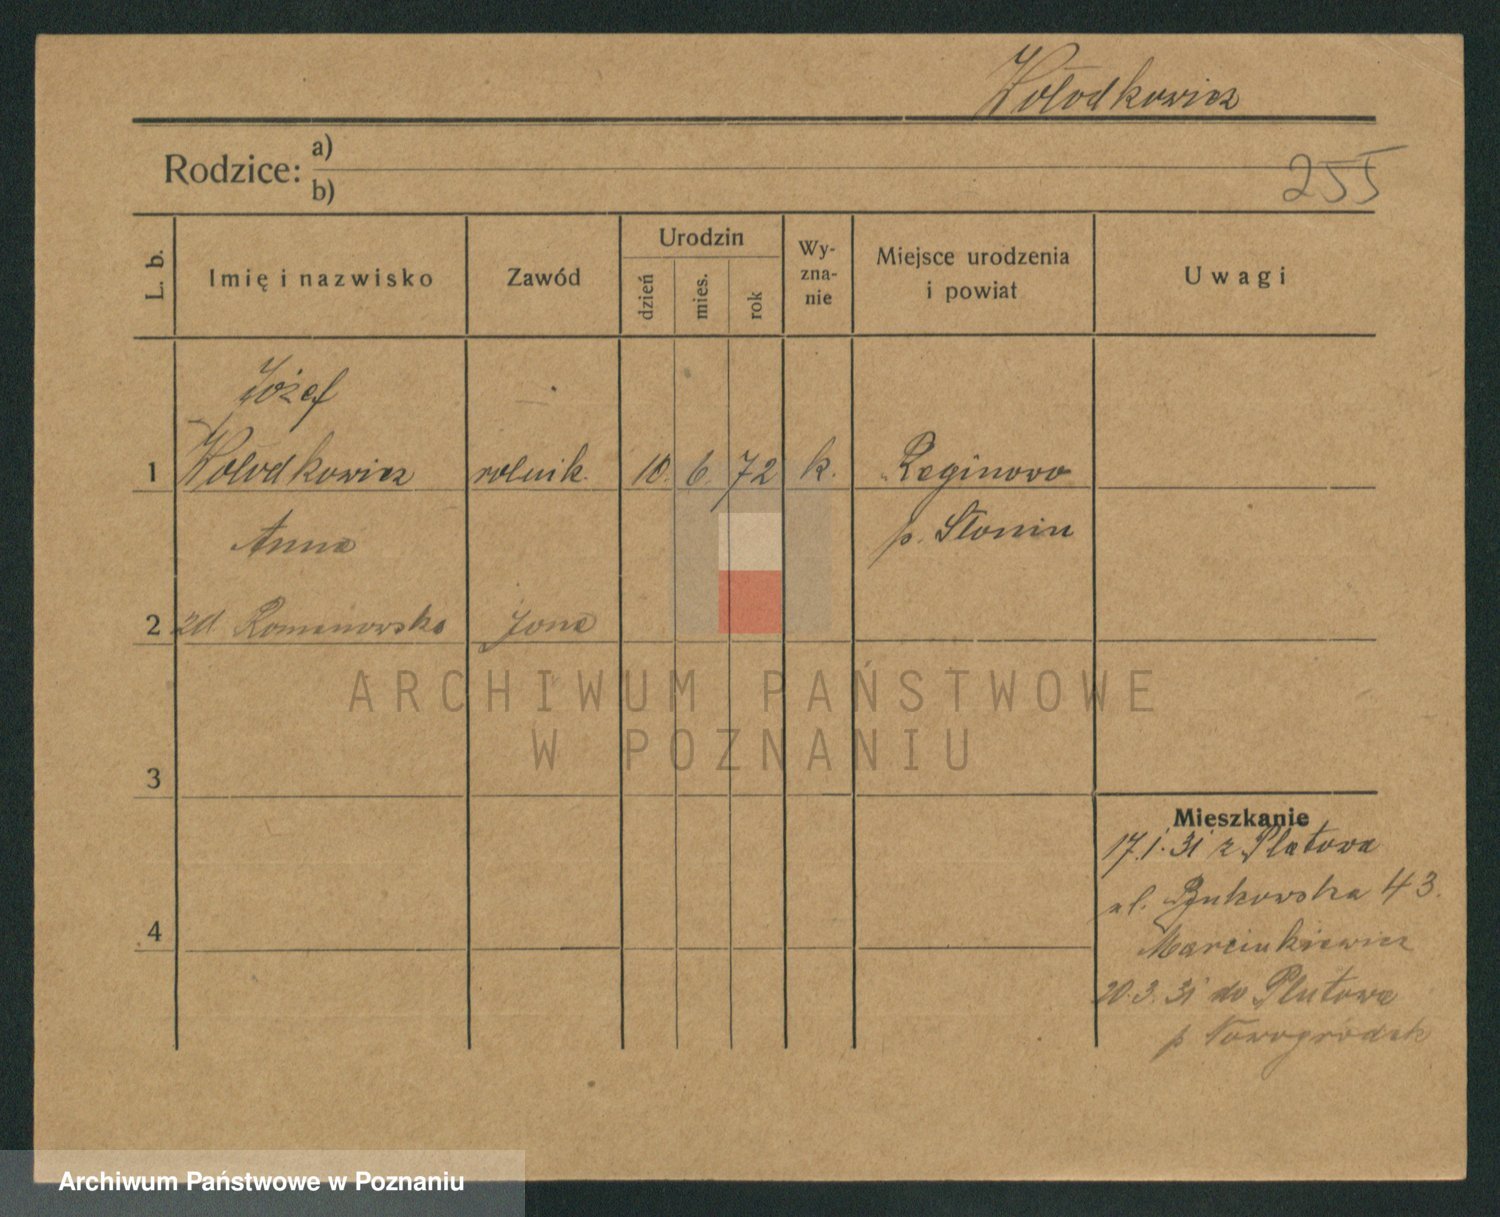 Wołodkowicz
Rodzice: a)
b)
255
L. b.
Imię i nazwisko
Zawód
Urodzin
dzień
mies.
rok
Wy-
zna-
nie
Miejsce urodzenia
i powiat
Uwagi
Józef
1 Wołodkowicz rolnik. 10. 6. 72 k. Reginowo
Anna p. Słonim
2 zd Romanowska żona
3
4
Mieszkanie
17.1.31 z Plutowa
ul. Bukowska 43.
Marcinkiewicz
20.3.31 do Plutowa
p Nowogródek
ARCHIWUM PAŃSTWOWE
W POZNANIU
Archiwum Państwowe w Poznaniu